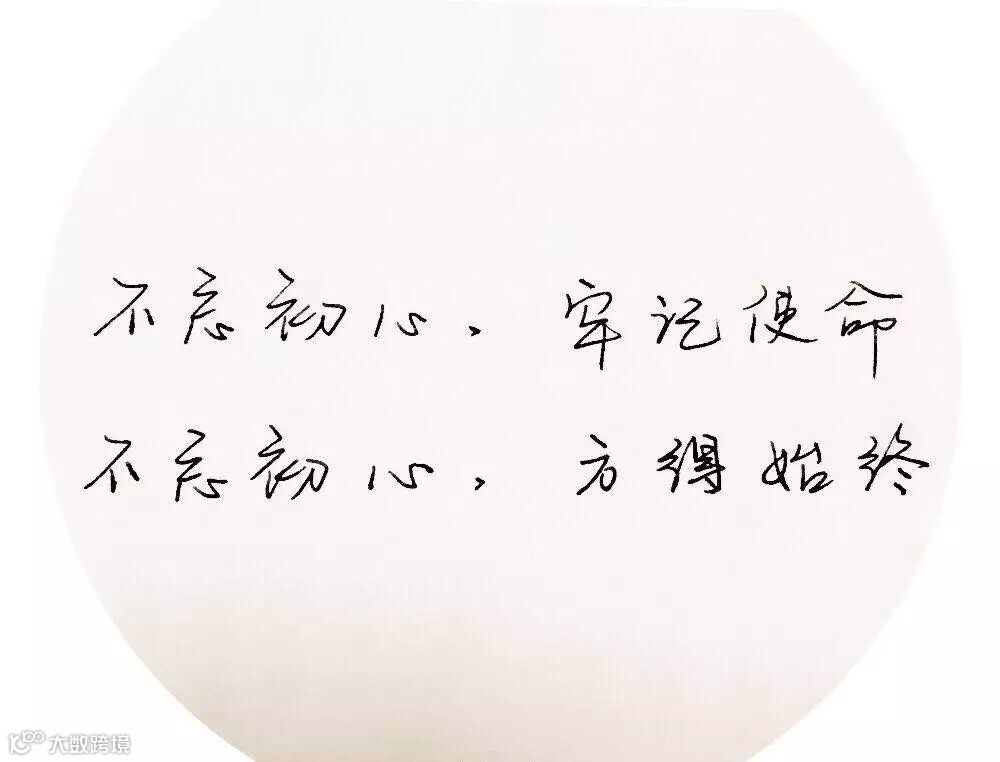 不忘初心，牢记使命
不忘初心，方得始终
大数跨境